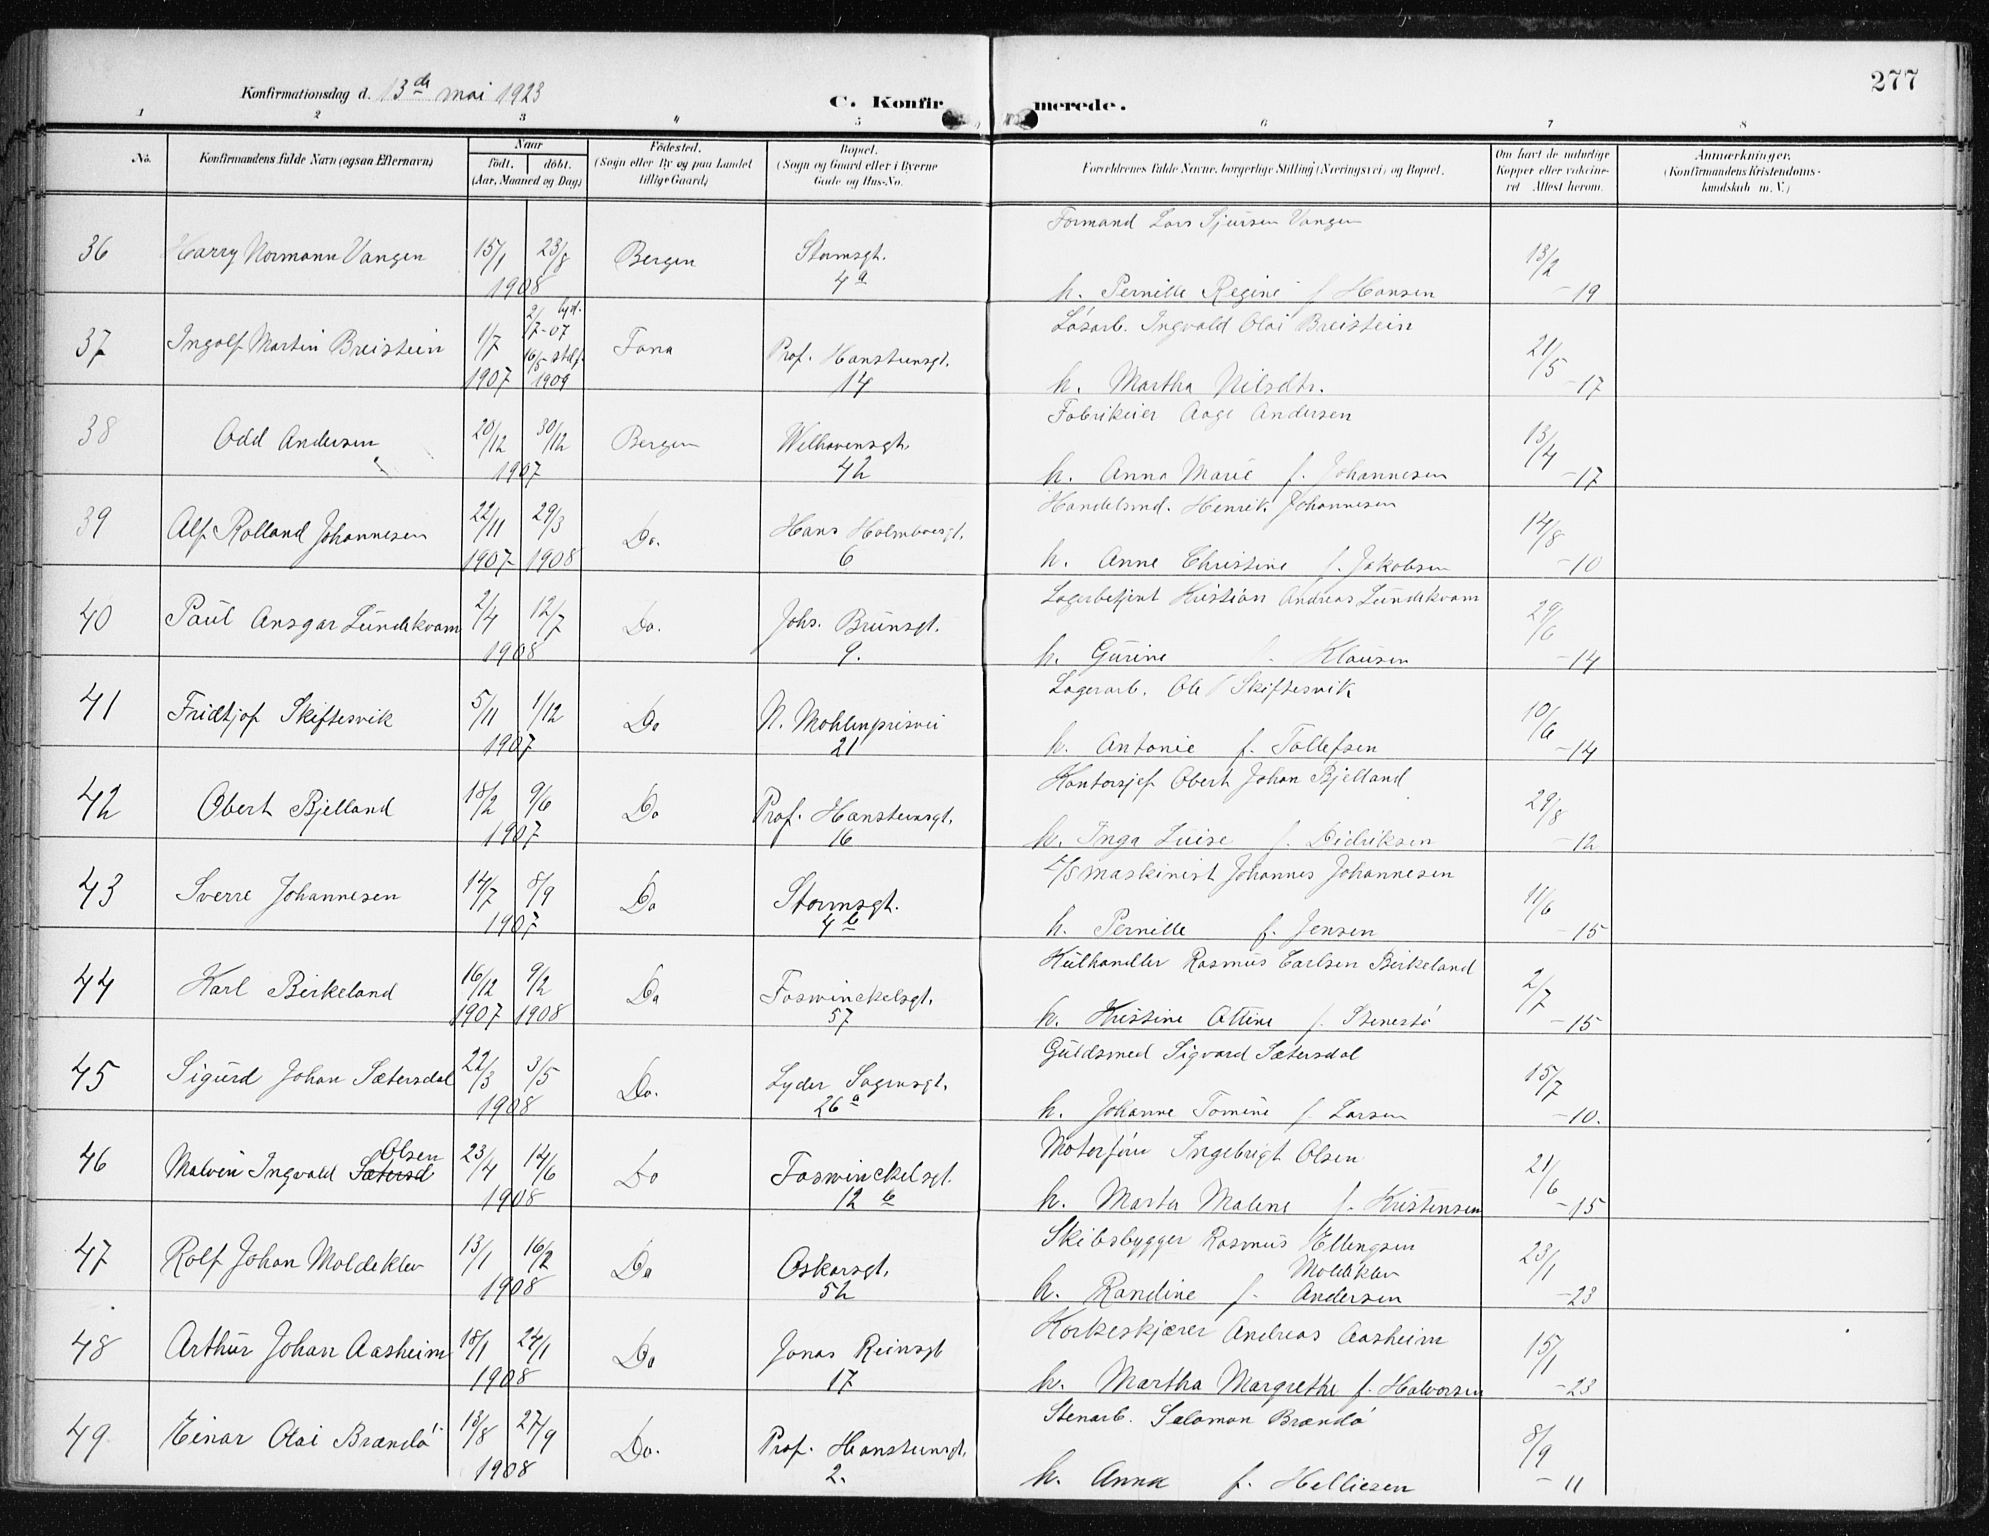 277
Konfirmationsdag d. 13de mai 1923
C. Konfirmerede.
1 2 3 4 5 6 7 8
No.
Konfirmandens fulde Navn (ogsaa Efternavn)
Naar
født. døbt.
(Aar, Maaned og Dag)
Fødested.
(Sogn eller By og paa Landet
tillige Gaard)
Bopæl.
(Sogn og Gaard eller i Byerne
Gade og Hus-No.
Forældrenes fulde Navne, borgerlige Stilling (Næringsvei) og Bopæl.
Om havt de naturlige
Kopper eller vakcine-
ret Attest herom.
Anmærkninger.
(Konfirmandens Kristendoms-
kundskab m. V.)
Formand Lars Sjursen Vangen
36 Harry Normann Vangen 15/1 23/8 Bergen Stormsgt. 13/2
1908 4a h. Pernille Regine f. Hansen -19
2/7-07 hjd. Løsarb. Ingvald Olai Breistein
37 Ingolf Martin Breistein 1/7 16/5 stdf. Fana Prof. Hansteensgt. 21/5
1907 1909 14 h. Martha Nilsdtr. -17
Fabrikeier Aage Andersen
38 Odd Andersen 20/12 30/12 Bergen Welhavensgt. 13/4
1907 42 h. Anna Marie f. Johannesen -17
Handelsmd. Henrik Johannesen
39 Alf Rolland Johannesen 22/11 29/3 Do. Hans Holmboesgt. 14/8
1907 1908 6 h. Anne Christine f. Jakobsen -10
Lagerbetjent Kristian Andreas Lundekvam
40 Paul Ansgar Lundekvam 2/4 12/7 Do. Johs. Brunsgt. 29/6
1908 9. h. Gurine f. Klausen -14
Lagerarb. Ole Skiftesvik
41 Fridtjof Skiftesvik 5/11 1/12 Do N. Møhlenprisvei 10/6
1907 21 h. Antonie f. Tollefsen -14
Kontorsjef Obert Johan Bjelland
42 Obert Bjelland 18/2 9/6 Do Prof. Hansteensgt. 29/8
1907 16 h. Inga Luise f. Didriksen -12
D/S maskinist Johannes Johannesen
43 Sverre Johannesen 14/7 8/9 Do Stormsgt. 11/6
1907 4b h. Pernille f. Jensen -15
Kulhandler Rasmus Carlsen Birkeland
44 Karl Birkeland 16/12 9/2 Do Foswinckelsgt. 2/7
1907 1908 57 h. Kristine Ottine f. Stenestø -15
Guldsmed Sigvard Sætersdal
45 Sigurd Johan Sætersdal 22/3 3/5 Do. Lyder Sagensgt. 15/7
1908 26a h. Johanne Tomine f. Larsen -10.
Olsen Motorfører Ingebrigt Olsen
46 Malvin Ingvald Sætersd 23/4 14/6 Do Foswinckelsgt. 21/6
1908 12 b h. Marta Malene f. Kristensen -15
Skibsbygger Rasmus Ellingsen
47 Rolf Johan Moldeklev 13/1 16/2 Do Oskarsgt. Moldeklev 23/1
1908 52 h. Randine f. Andersen -23
Korkeskjærer Andreas Aasheim
48 Arthur Johan Aasheim 18/1 24/1 Do Jonas Reinsgt 15/1
1908 17 h. Martha Margrethe f. Halvorsen -23
Stenarb. Salomon Brandø
49 Einar Olai Brandø 13/8 27/9 Do. Prof. Hansteensgt. 8/9
1908 2. h. Anna f. Helliesen -11